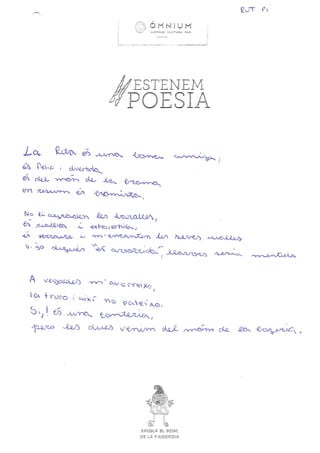 RUT P1
ÒMNIUM
ESTENEM
POESIA
La Rita és una bona amiga,
és feliç i divertida,
és del món de la broma,
en resum és bromista.
No li agraden les baralles,
és realista i extrovertida,
és i m'encanten les seves rialles
si jo digués "és avorrida", llavors seria mentida
A vegades m'avorreixo,
la truco i així no pateixo.
Si! és una comèdia,
però les dues venim del món de la bogeria.
ESCOLA EL ROURE
DE LA FASSÈDIA